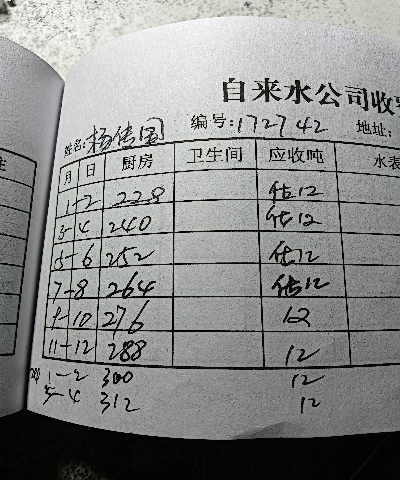 自来水公司收
姓名:杨传国 编号:172742 地址:
月 日 厨房 卫生间 应收吨 水表
1-2 228 估12
3-4 240 估12
5-6 252 估12
7-8 264 估12
9-10 276 12
11-12 288 12
1-2 300 12
3-4 312 12